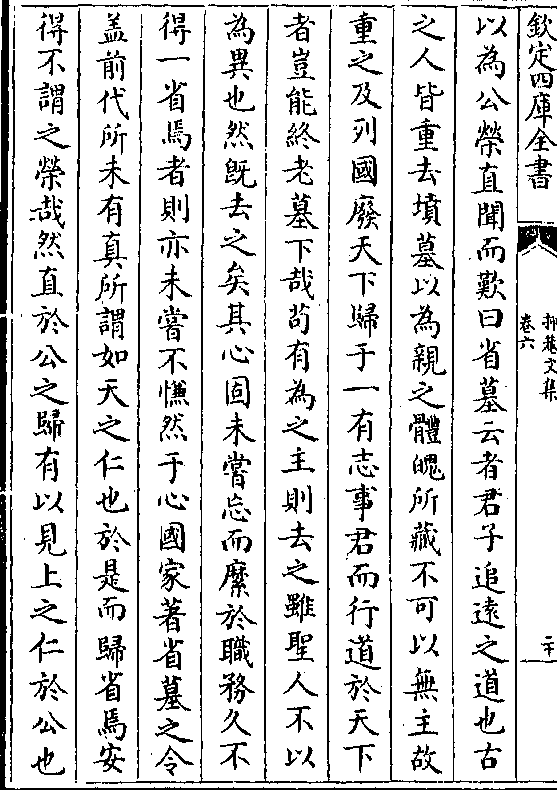 欽定四庫全書
抑菴文集
卷六
二十
以為公榮直聞而歎曰省墓云者君子追遠之道也古
之人皆重去墳墓以為親之體魄所藏不可以無主故
重之及列國廢天下歸于一有志事君而行道於天下
者豈能終老墓下哉苟有為之主則去之雖聖人不以
為異也然既去之矣其心固未嘗忘而縻於職務久不
得一省焉者則亦未嘗不慊然于心國家著省墓之令
盖前代所未有真所謂如天之仁也於是而歸省焉安
得不謂之榮哉然直於公之歸有以見上之仁於公也